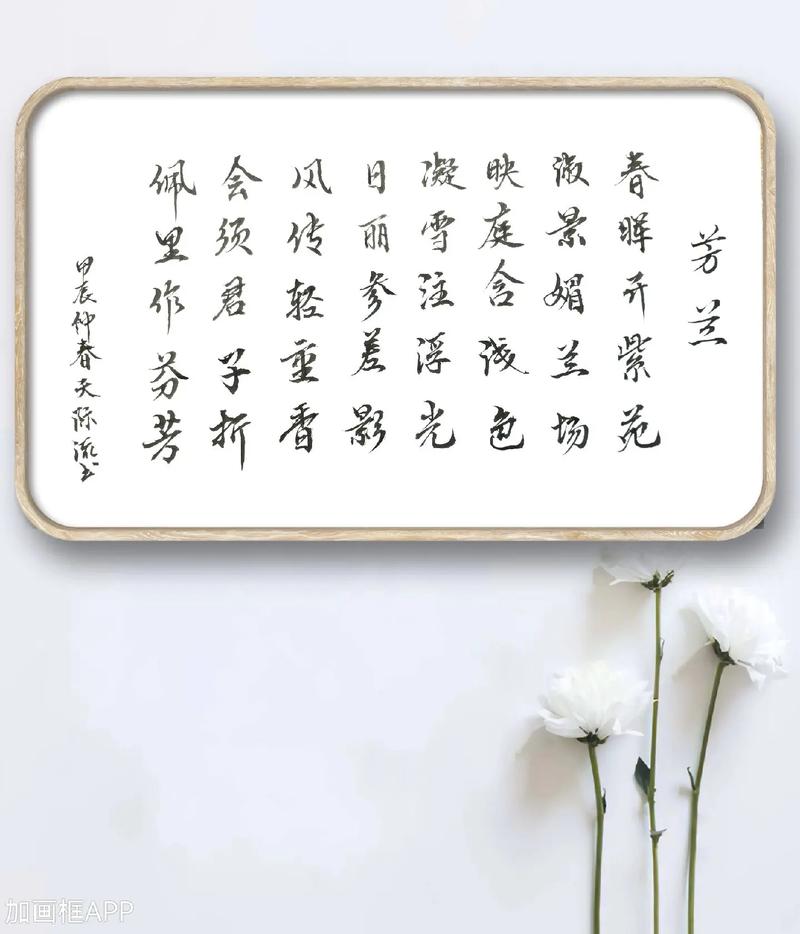 芳兰
春晖开紫苑
淑景媚兰场
映庭含浅色
凝雪注浮光
日丽参差影
风传轻重香
会须君子折
佩里作芬芳
甲辰仲春天际流书
加画框APP